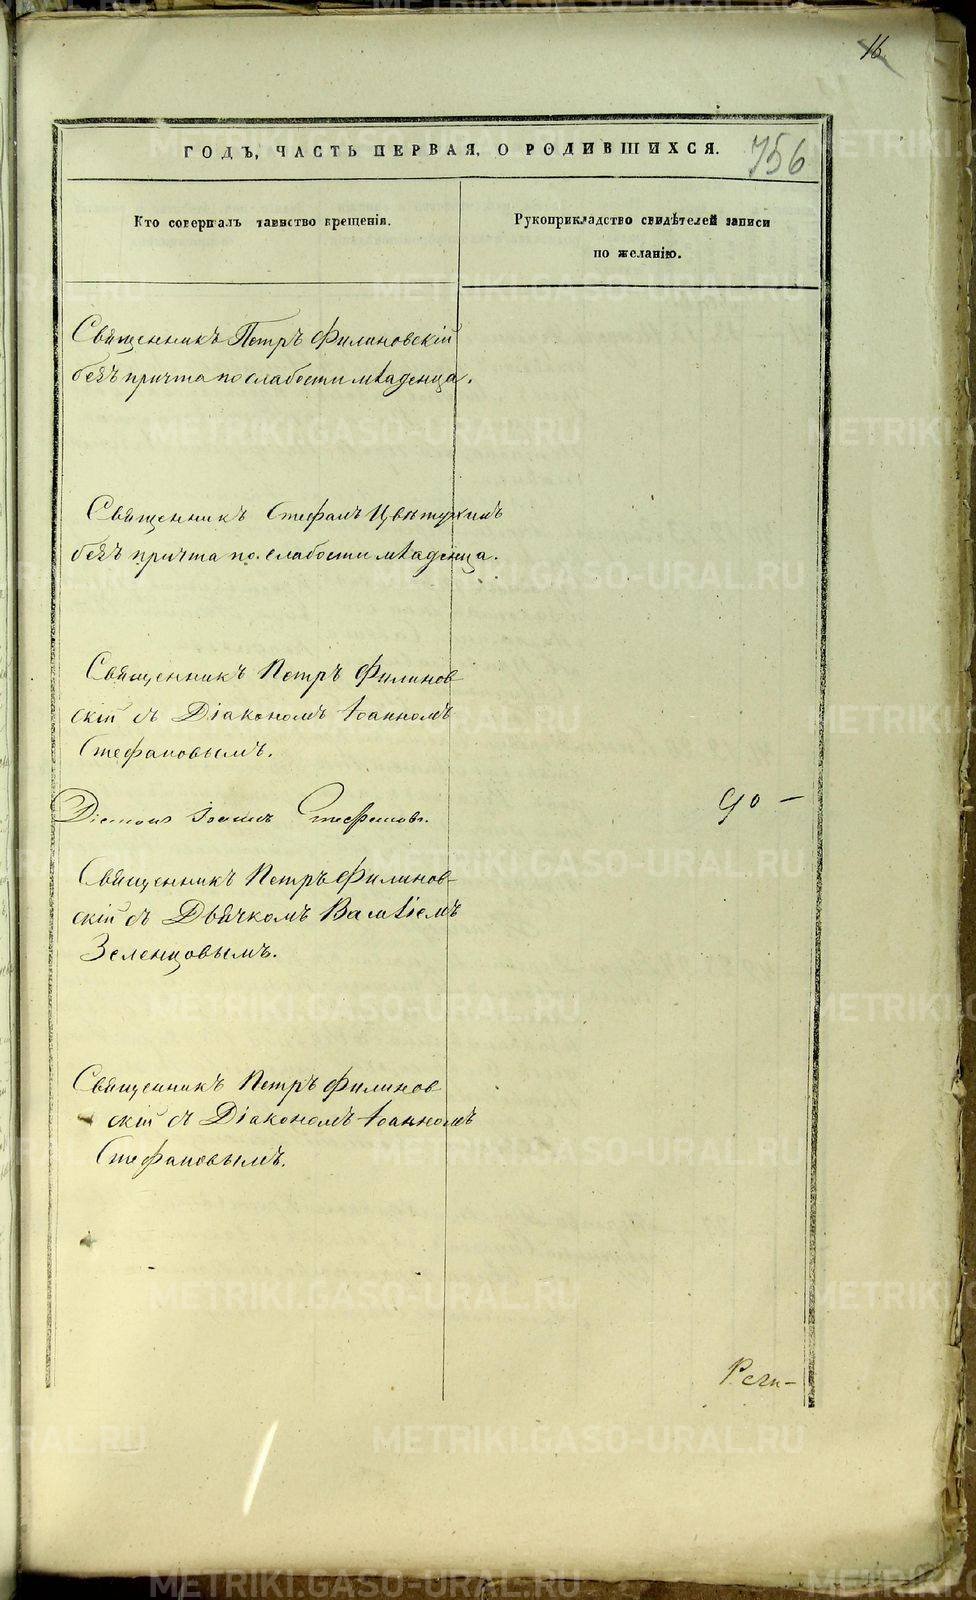 16
ГОДЪ, ЧАСТЬ ПЕРВАЯ, О РОДИВШИХСЯ. 756
Кто совершалъ таинство крещенія.
Рукоприкладство свидѣтелей записи
по желанію.
Священникъ Петръ Филиновскій
безъ причта по слабости младенца.
Священникъ Стефанъ Цвѣтухинъ
безъ причта по слабости младенца.
Священникъ Петръ Филинов-
скій съ Діакономъ Іоанномъ
Стефановымъ.
Діаконъ Іоаннъ Стефановъ.
до –
Священникъ Петръ Филинов-
скій съ Дьячкомъ
Зеленцовымъ.
Священникъ Петръ Филинов
скій съ Діакономъ Іоанномъ
Стефановымъ.
METRIKI.GASO-URAL.RU